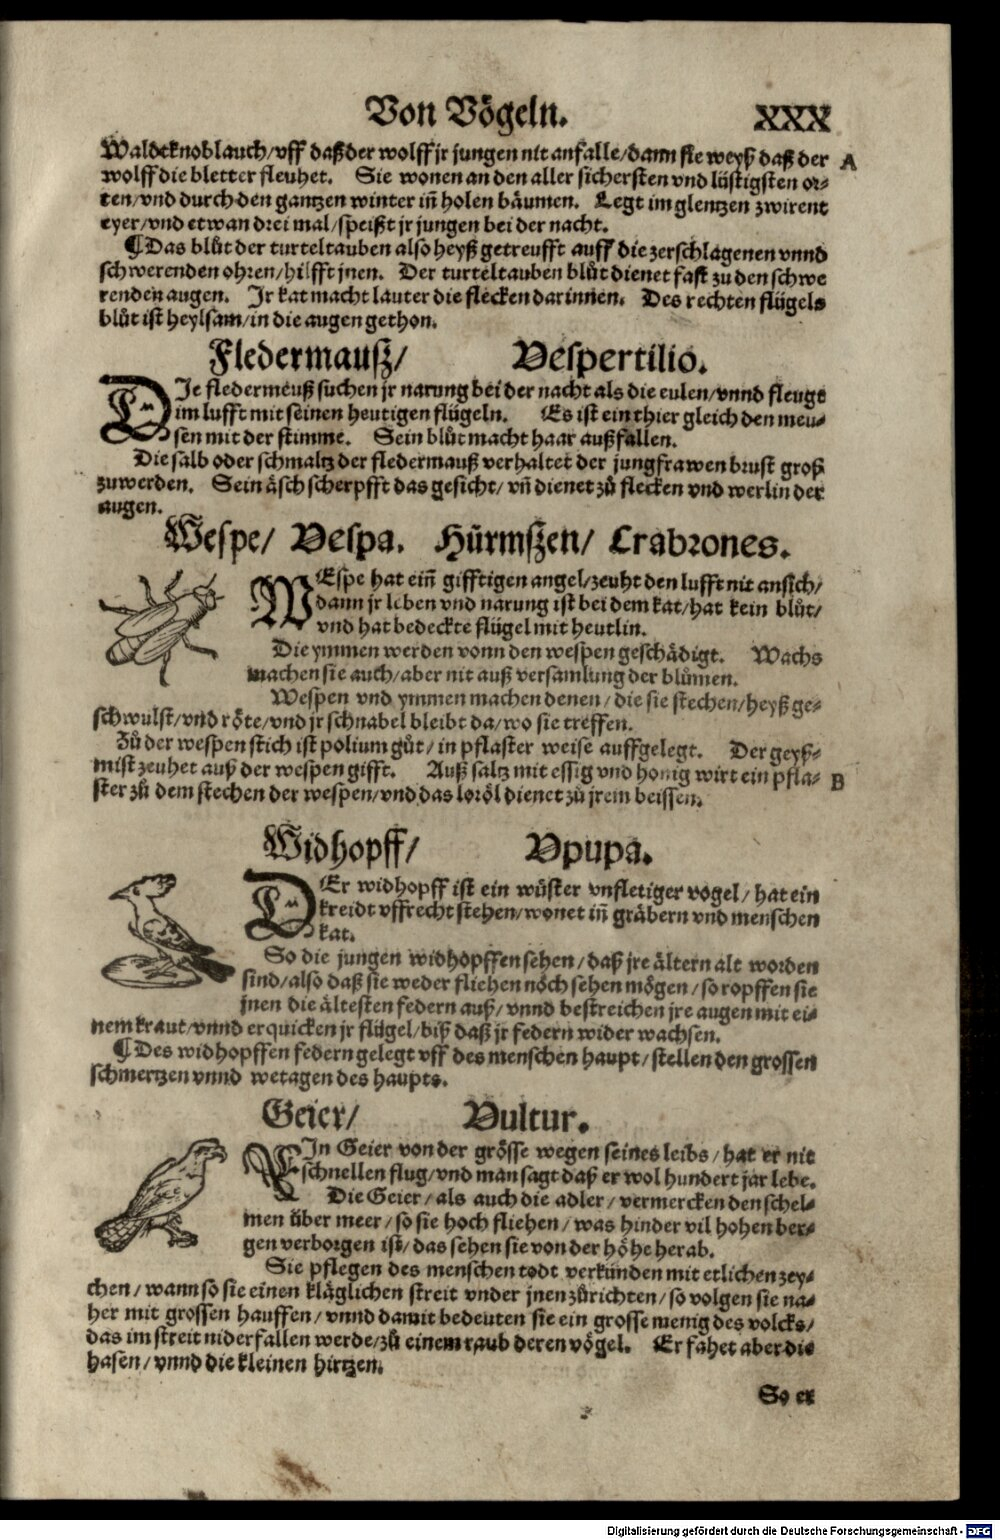 Von Vögeln. XXX
Waldtknoblauch/vff daß der wolff jr jungen nit anfalle/dann sie weyß daß der A
wolff die bletter fleuhet. Sie wonen an den aller sichersten vnd lüstigsten or⸗
ten/vnd durch den gantzen winter iñ holen bäumen. Legt im glentzen zwirent
eyer/vnd etwan drei mal/speißt jr jungen bei der nacht.
¶Das blůt der turteltauben also heyß getreufft auff die zerschlagenen vnnd
schwerenden ohren/hilfft jnen. Der turteltauben blůt dienet fast zu den schwe
renden augen. Ir kat macht lauter die flecken darinnen. Des rechten flügels
blůt ist heylsam/in die augen gethon.
Fledermausz/ Vespertilio.
DIe fledermeuß suchen jr narung bei der nacht als die eulen/vnnd fleugt
im lufft mit seinen heutigen flügeln. Es ist ein thier gleich den meu⸗
sen mit der stimme. Sein blůt macht haar außfallen.
Die salb oder schmaltz der fledermauß verhaltet der jungfrawen brust groß
zuwerden. Sein äsch scherpfft das gesicht/vñ dienet zů flecken vnd werlin der
augen.
Wespe/ Vespa. Hürmszen/ Crabrones.
WEspe hat eiñ gifftigen angel/zeuht den lufft nit an sich/
dann jr leben vnd narung ist bei dem kat/hat kein blůt/
vnd hat bedeckte flügel mit heutlin.
Die ymmen werden vonn den wespen geschädigt. Wachs
machen sie auch/aber nit auß versamlung der blůmen.
Wespen vnd ymmen machen denen/die sie stechen/heyß ge⸗
schwulst/vnd röte/vnd jr schnabel bleibt da/wo sie treffen.
Zů der wespen stich ist polium gůt/in pflaster weise auffgelegt. Der geyß⸗
mist zeuhet auß der wespen gifft. Auß saltz mit essig vnd honig wirt ein pfla⸗ B
ster zů dem stechen der wespen/vnd das loröl dienet zů jrem beissen.
Widhopff/ Vpupa.
DEr widhopff ist ein wüster vnfletiger vogel/hat ein
kreidt vffrecht stehen/wonet iñ gräbern vnd menschen
kat.
So die jungen widhopffen sehen/daß jre ältern alt worden
sind/also daß sie weder fliehen noch sehen mögen/so ropffen sie
jnen die ältesten federn auß/vnnd bestreichen jre augen mit ei⸗
nem kraut/vnnd erquicken jr flügel/biß daß jr federn wider wachsen.
¶Des widhopffen federn gelegt vff des menschen haupt/stellen den grossen
schmertzen vnnd wetagen des haupts.
Geier/ Vultur.
EIn Geier von der grösse wegen seines leibs/hat er nit
schnellen flug/vnd man sagt daß er wol hundert jar lebe.
Die Geier/als auch die adler/vermercken den schel⸗
men über meer/so sie hoch fliehen/was hinder vil hohen ber⸗
gen verborgen ist/das sehen sie von der höhe herab.
Sie pflegen des menschen todt verkünden mit etlichen zey⸗
chen/wann so sie einen kläglichen streit vnder jnen zůrichten/so volgen sie na⸗
her mit grossen hauffen/vnnd damit bedeuten sie ein grosse menig des volcks/
das im streit niderfallen werde/zů einem raub deren vögel. Er fahet aber die
hasen/vnnd die kleinen hirtzen.
So er
Digitalisierung gefördert durch die Deutsche Forschungsgemeinschaft - DFG